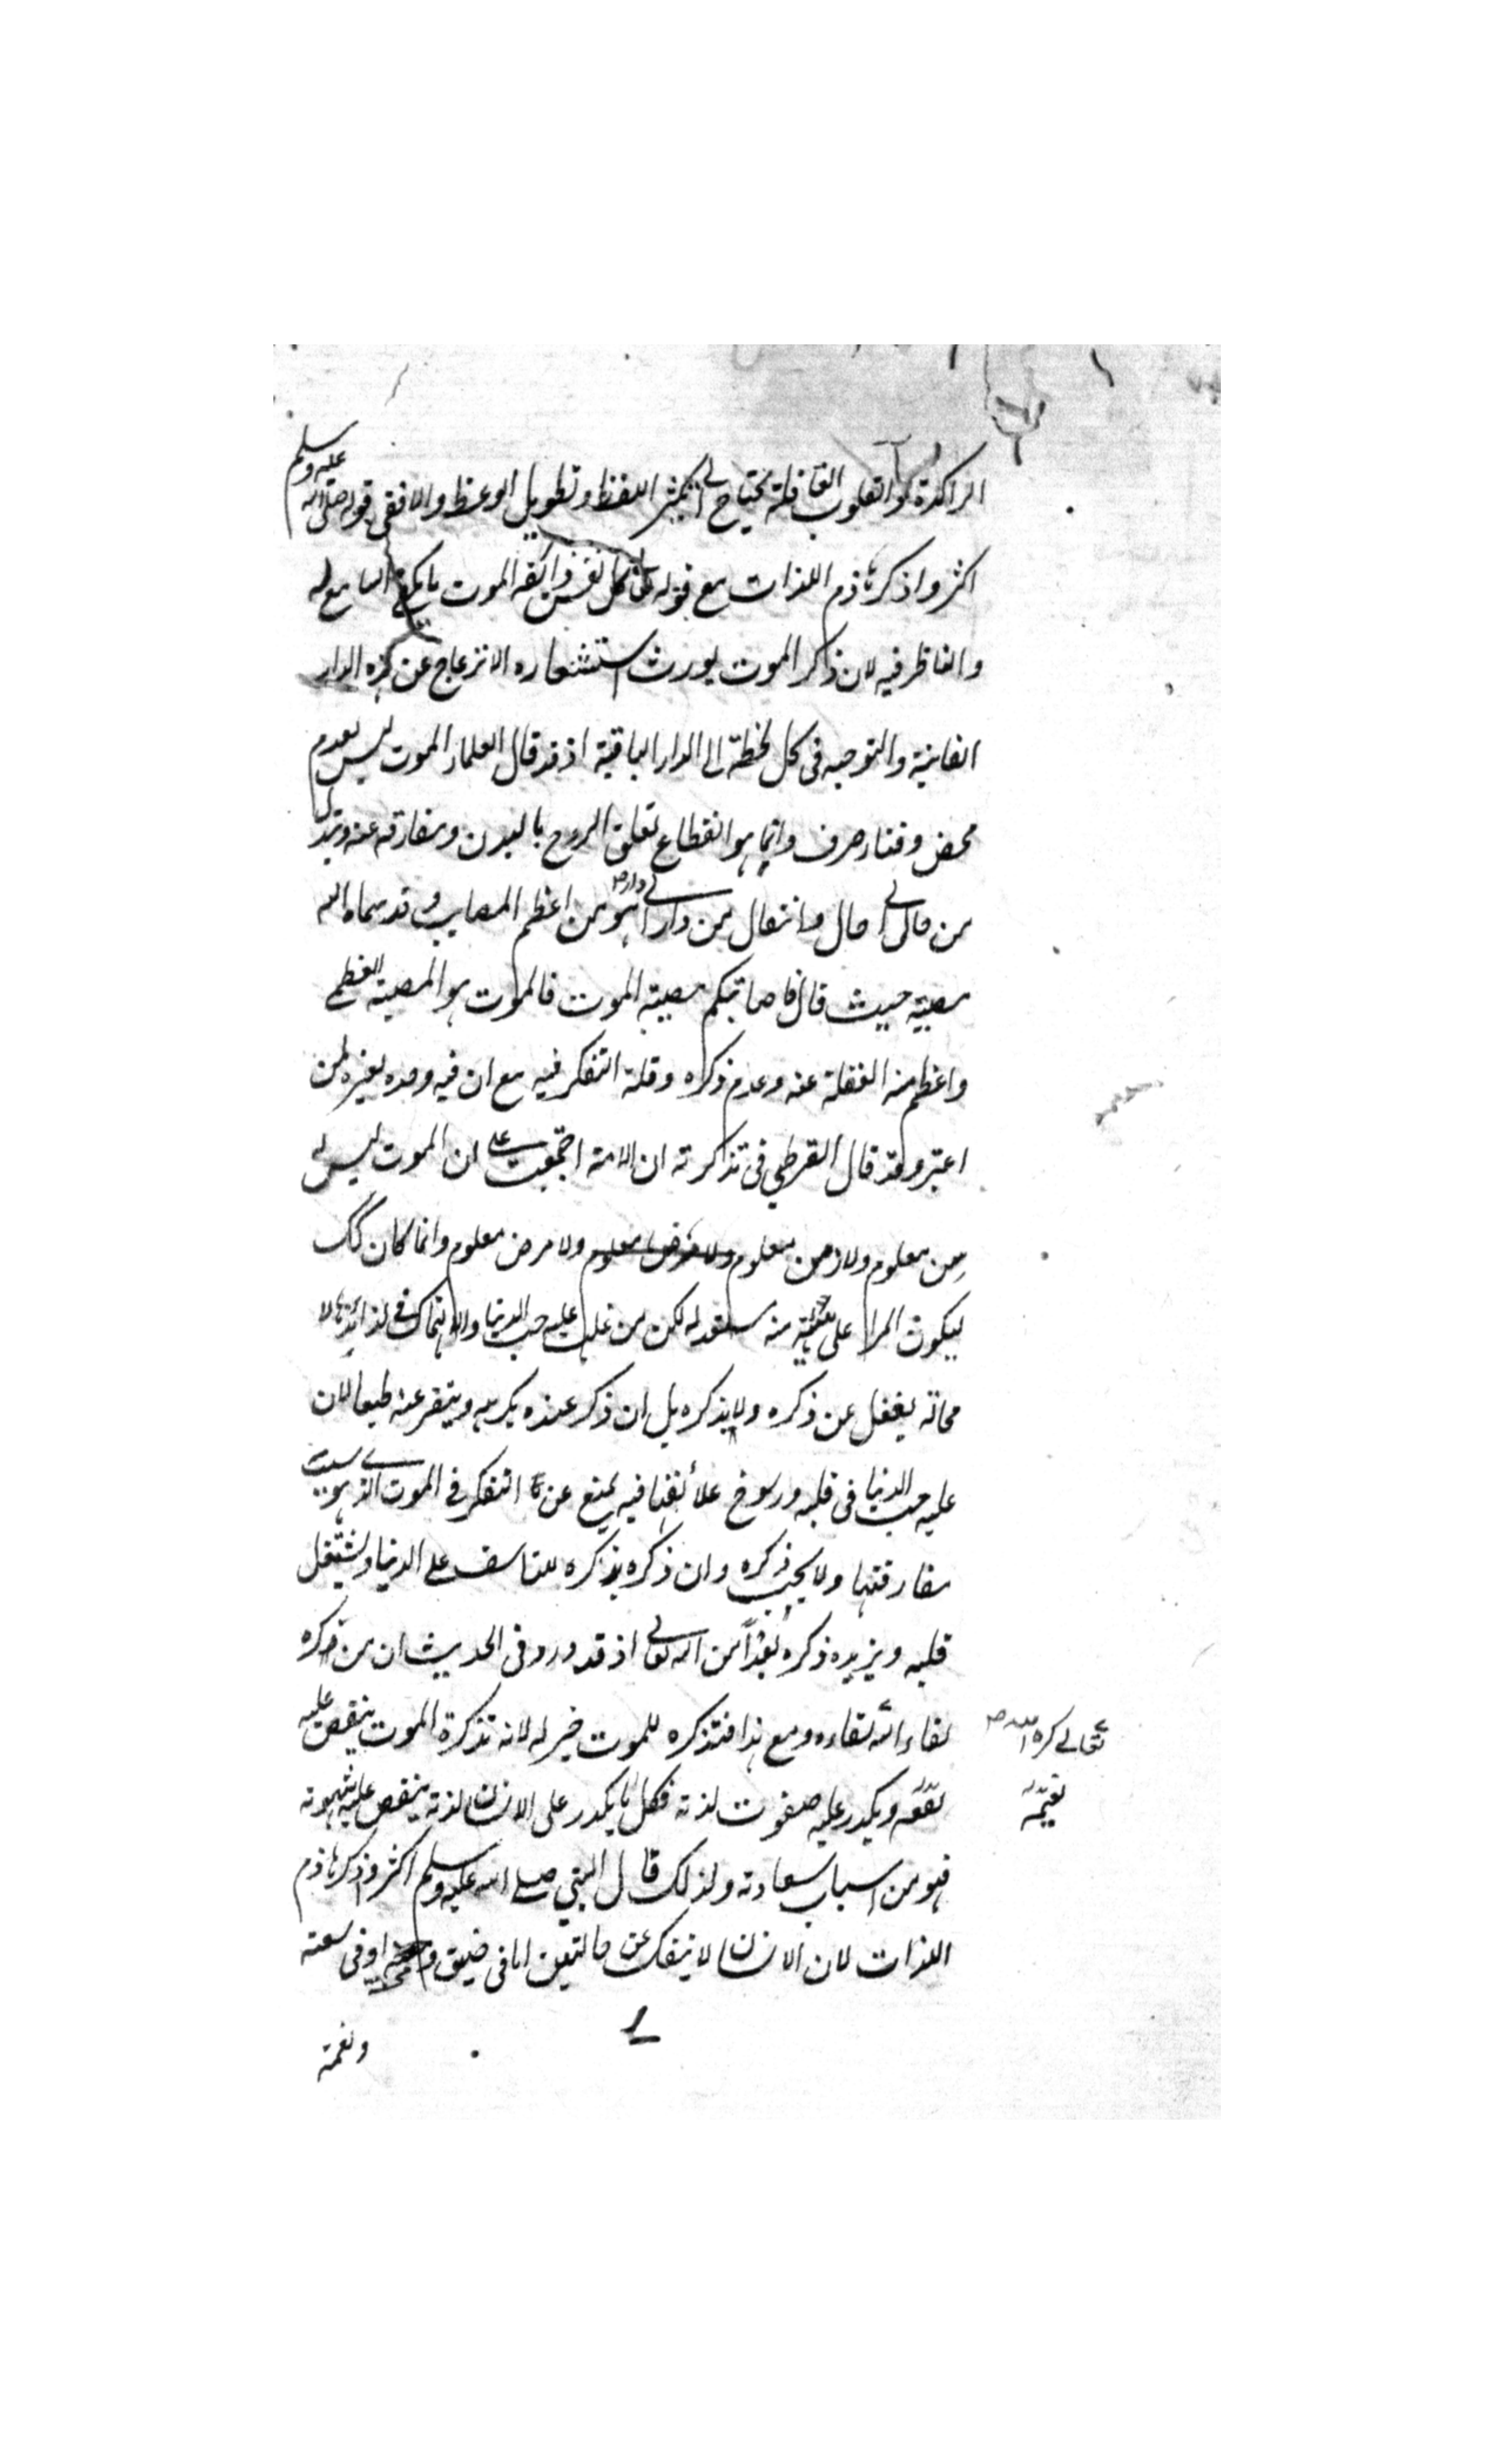 الراكدة والقلوب الغافلة تحتاج الى تكثير اللفظ وتطويل الوعظ والا ففى قوله صلى الله عليه وسلم
اكثروا ذكر هاذم اللذات مع قوله تعالى كل نفس ذائقة الموت ما يكفى السامع له
والناظر فيه لان ذكر الموت يورث استشعاره الانزعاج عن هذه الدار
الفانية والتوجه فى كل لحظة الى الدار الباقية اذ قد قال العلماء الموت ليس بعدم
محض وفناء صرف وانما هو انقطاع تعلق الروح بالبدن ومفارقه عنه وتبدل
من حال الى حال وانتقال من دار الى دار وهو من اعظم المصايب وقد سماه الله
مصيبة حيث قال فاصابتكم مصيبة الموت فالموت هو المصيبة العظمى
واعظم منه الغفلة عنه وعدم ذكره وقلة التفكر فيه مع ان فيه وحده لعبرة لمن
اعتبر وقد قال القرطبى فى تذكرته ان الامة اجتمعت على ان الموت ليس له
سن معلوم ولا زمن معلوم ولا مرض معلوم وانما كان كك
ليكون المرا على اهبة منه مستعد له لكن من غلب عليه حب الدنيا والانهماك فى لذائذها لا
محالة يغفل عن ذكره ولا يذكره بل ان ذكر عنده يكرهه ويتنفر عنه طبعا لان
عليه حب الدنيا فى قلبه ورسوخ علائقها فيه يمنع عن التفكر فى الموت الذى هو سبب
مفارقتها ولا يحب ذكره وان ذكره يذكره للتاسف على الدنيا ويشتغل
قلبه ويزيده ذكره بعدا من الله تعالى اذ قد ورد فى الحديث ان من كره
لقاء الله تعالى كره الله لقاءه ومع هذا فتذكره للموت خير له لانه تذكرة الموت ينقص عليه
نعيمه ويكدر عليه صفوت لذته فكل ما يكدر على الانسان لذته ينقص عليه شهوته
فهو من اسباب سعادته ولذلك قال النبى صلى الله عليه وسلم اكثروا ذكر هاذم
اللذات لان الانسان لا ينفك عن حالتين اما فى ضيق او فى سعة
ونعمة